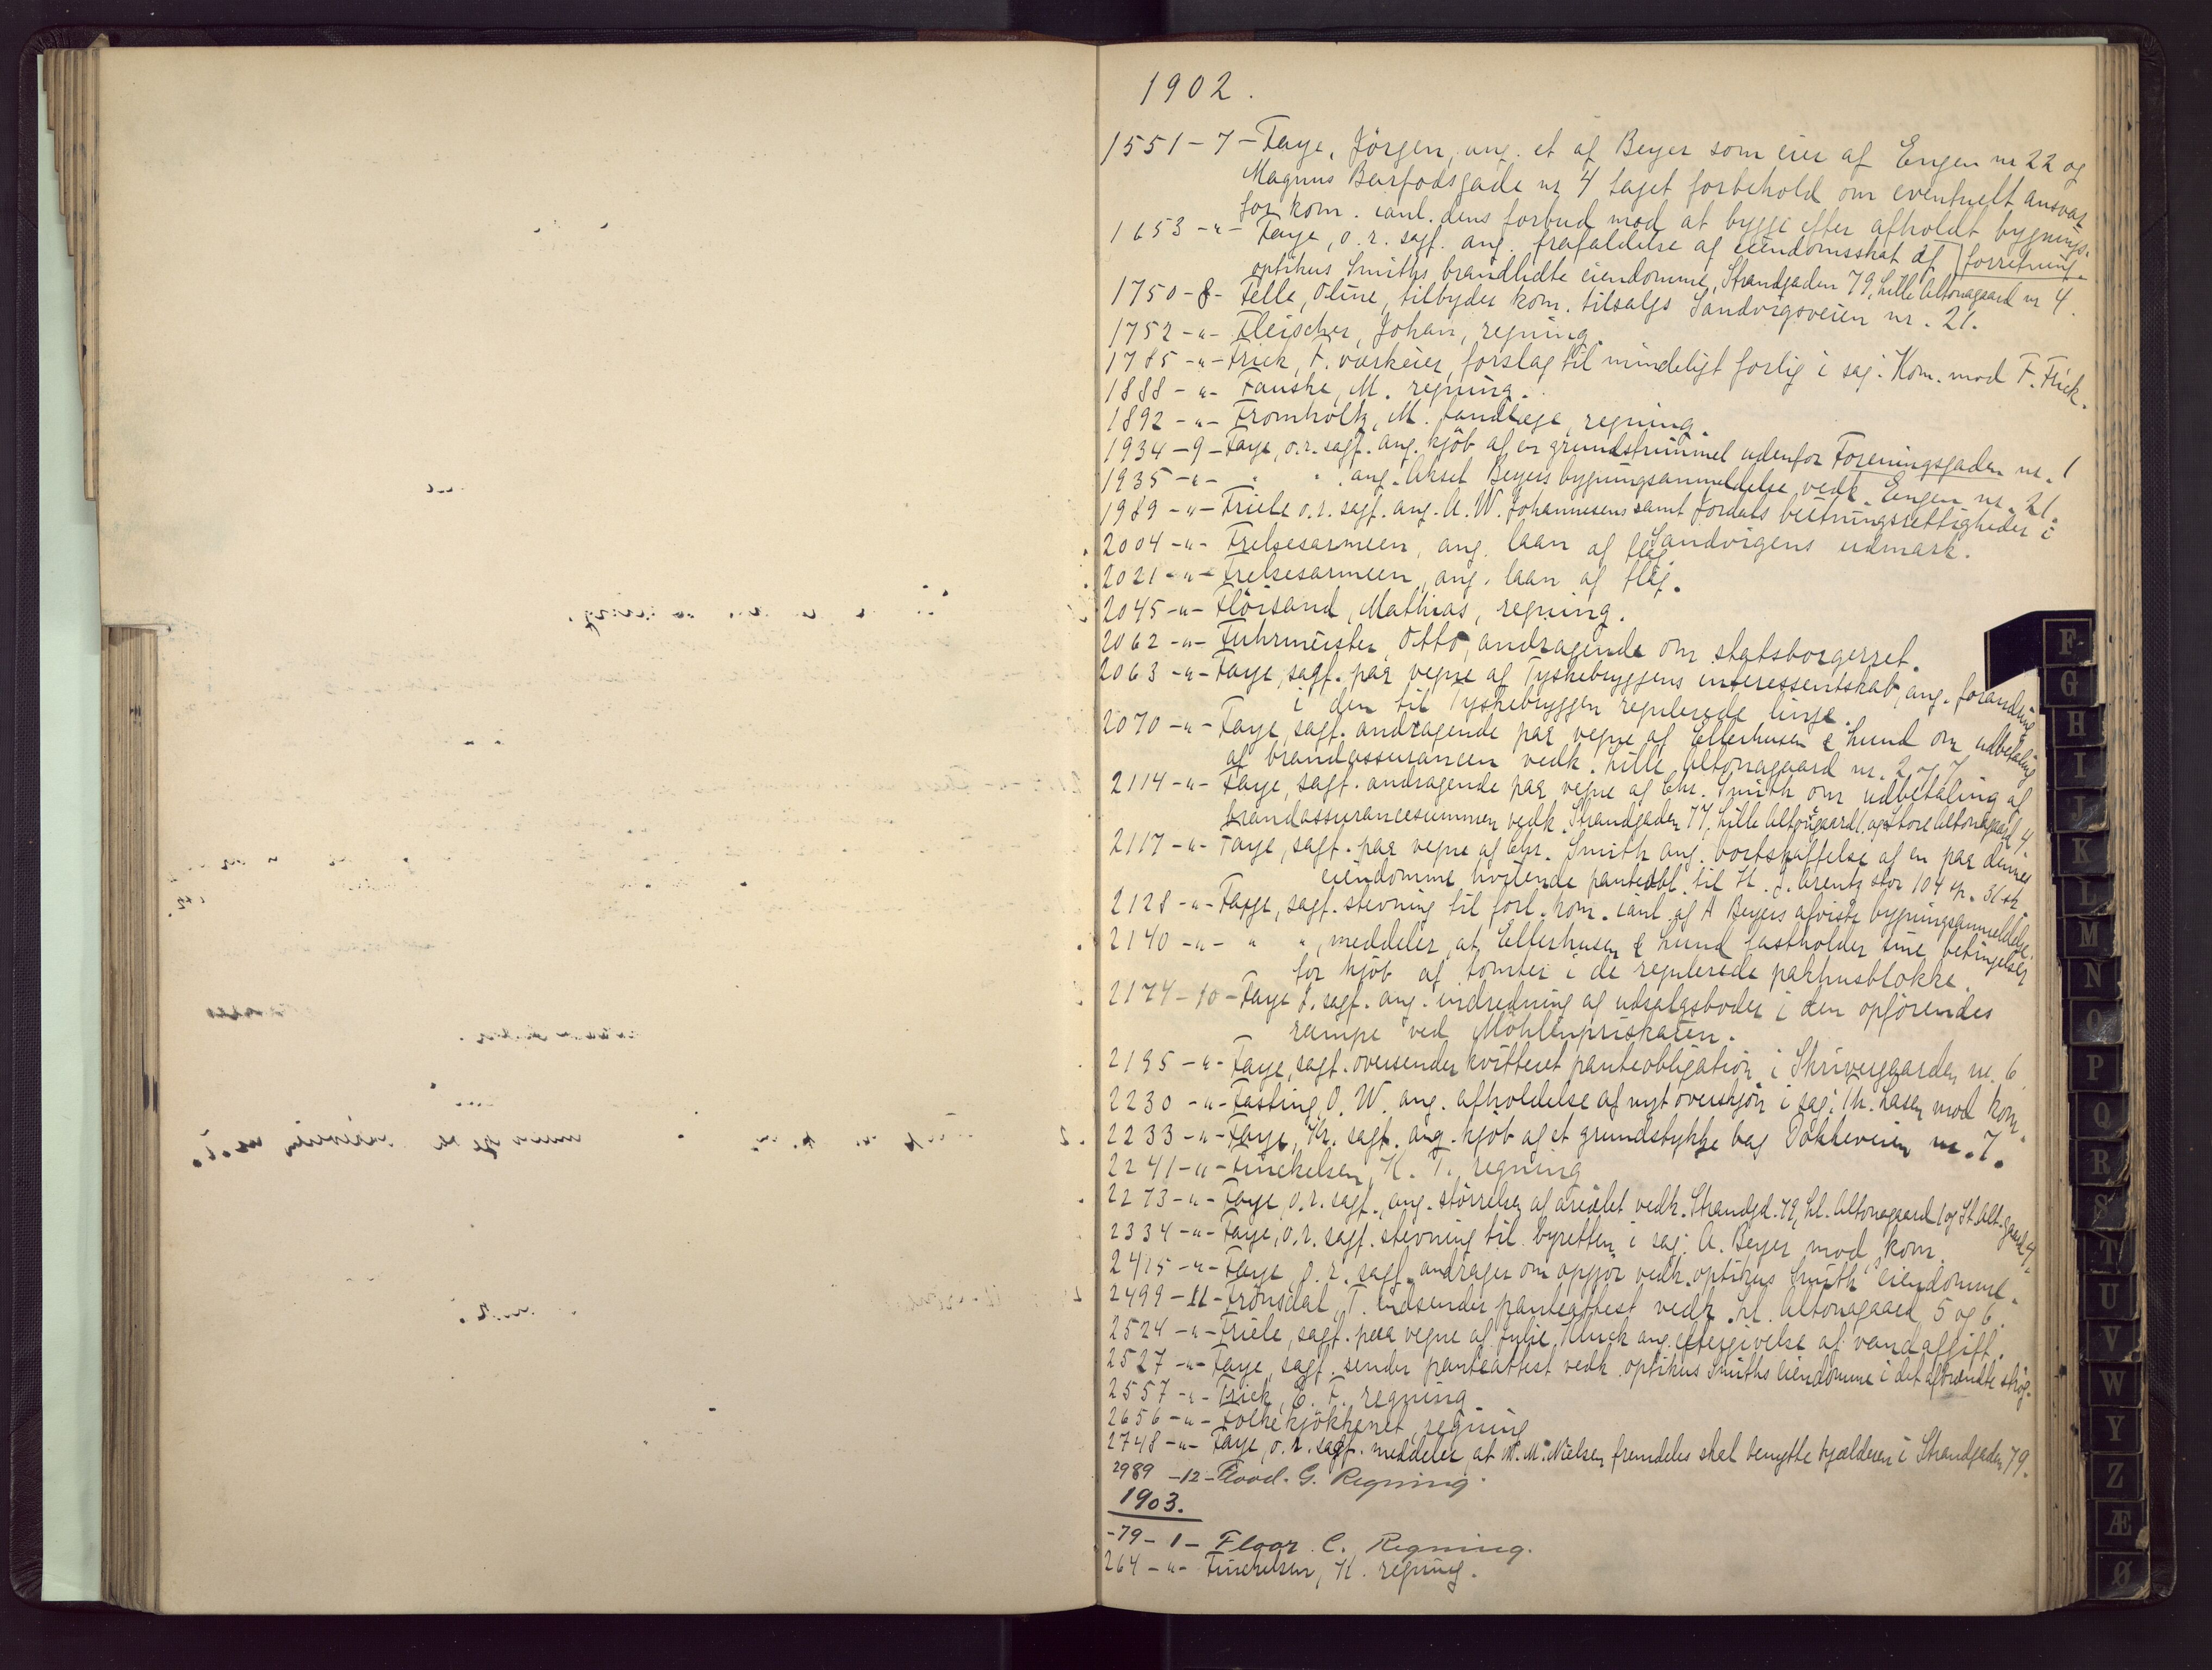 1902.
1551-7- Faye, Jörgen, ang. et af Beyer som eier af Engen nr 22 og
Magnus Barfodsgade nr 4 taget forbehold om eventuelt ansvar
for kom. ianl. dens forbud mod at bygge efter afholdt bygnings-
forretning.
1653-"- Faye, o.r. sagf. ang. frafaldelse af eiendomsskat af
optikus Smiths brandlidte eiendomme, Strandgaden 79, Lille Altonagaard nr 4.
1750-8- Felle, Oline, tilbyder kom. tilsalgs Sandvigsveien nr. 21.
1752-"- Fleischer, Johan, regning.
1785-"- Frick, F. værkeier, forslag til mindeligt forlig i sag: Kom. mod F. Frick.
1888-"- Fauske, M. regning.
1892-"- Fromholtz, M. tandlæge, regning.
1934-9- Faye, o.r. sagf. ang. kjöb af en grundstrimmel udenfor Foreningsgaden nr. 1
1935-"- " " ang. Aksel Beyers bygningsanmeldelse vedk. Engen nr. 21.
1989-"- Friele o.r. sagf. ang. A.W. Johannesens samt Jordals beitningsrettigheder i
Sandvigens udmark.
2004-"- Frelsesarmeen, ang. laan af flag.
2021-"- Frelsesarmeen, ang. laan af flag.
2045-"- Flöisand, Mathias, regning.
2062-"- Fuhrmeister, Otto, andragende om statsborgerret.
2063-"- Faye, sagf. paa vegne af Tyskebryggens interessentskab, ang. forandring
i den til Tyskebryggen regulerede linje.
2070-"- Faye, sagf. andragende paa vegne af Ellerhusen & Lund om udbetaling
af brandassurancen vedk. Lille Altonagaard nr. 2 - 7
2114-"- Faye, sagf. andragende paa vegne af Chr. Smith om udbetaling af
brandassurancesummen vedk. Strandgaden 77, Lille Altonagaard 1, og Store Altonagaard 4
2117-"- Faye, sagf. paa vegne af Chr. Smith ang. bortskaffelse af en paa dennes
eiendomme hvilende panteobl. til H. J. Arentz stor 104 sp. 31 sk.
2128-"- Faye, sagf. stevning til forl. kom. ianl. af A Beyers afviste bygningsanmeldelse.
2140-"- " ", meddeler at Ellerhusen & Lund fastholder sine betingelser
for kjöb af tomter i de regulerede pakhusblokke.
2174-10- Faye J. sagf. ang. indredning af udsalgsboder i den opförendes
rampe ved Möhlenpriskaien.
2195-"- Faye, sagf. oversender kvitteret panteobligation i Skrivergaarden nr. 6.
2230-"- Fasting, O. W. ang. afholdelse af nyt overskjön i sag: Th. Lasen mod kom.
2233-"- Faye, Kr. sagf. ang. kjöb af et grundstykke bag Dokkeveien nr. 7.
2241-"- Finckelsen, K. T., regning
2273-"- Faye, o.r. sagf., ang. störrelsen af arealet vedk. Strandgd. 79, Ll. Altonagaard 1 og St. Alt. gaard 4
2334-"- Faye, o.r. sagf. stevning til byretten i sag: A. Beyer mod kom.
2415-"- Faye, o.r. sagf. andrager om opgjör vedk. optikus Smith eiendomme.
2499-11- Frönsdal, T. indsender panteattest vedk. Ll. Altonagaard 5 og 6.
2524-"- Friele, sagf. paa vegne af Julie Kluck ang. eftergivelse af vandafgift.
2527-"- Faye, sagf. sender panteattest vedk. optikus Smiths eiendomme i det afbrændte strög.
2557-"- Frick, C. F. regning.
2656-"- Folkekjökkenet, regning
2748-"- Faye, o.r. sagf. meddeler, at N. M. Nielsen fremdeles skal benytte kjælderen i Strandgaden 79.
2989-12- Flood. G. Regning.
1903.
-79-1- Floor C. Regning.
264-"- Finckelsen, K. regning.
F
G
H
I
J
K
L
M
N
O
P
Q
R
S
T
U
V
W
Y
Z
Æ
Ø